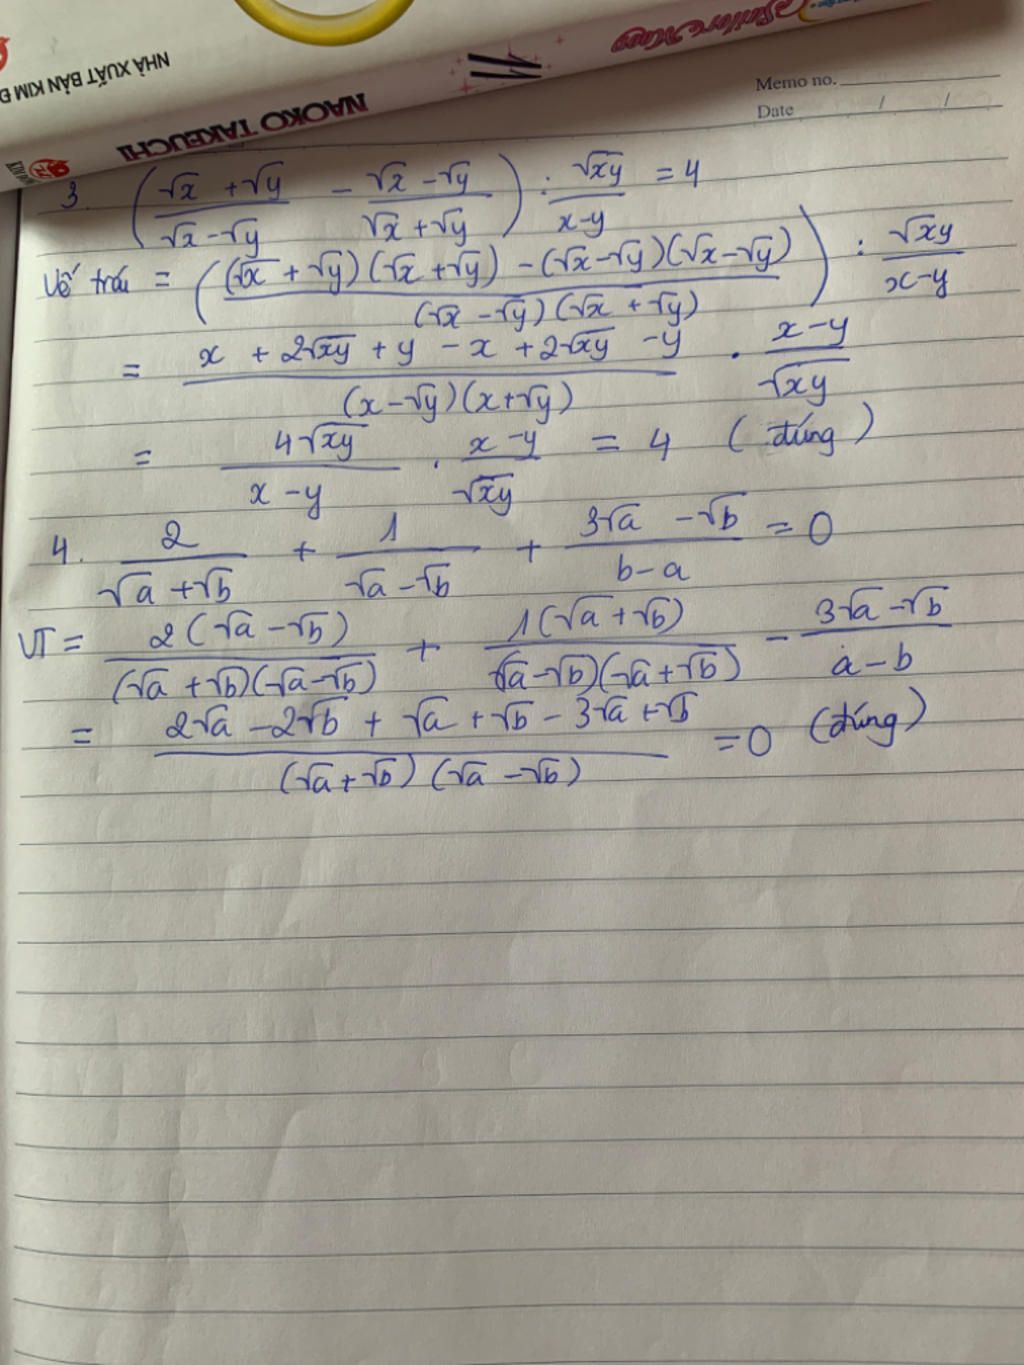 NHÀ XUẤT BẢN KIM Đ
NAOKO TAKEUCHI
Sailor Moon
Memo no.
Date / /
3. ( (√x + √y)/(√x - √y) - (√x - √y)/(√x + √y) ) : √xy/(x-y) = 4
Vế trái = ( ((√x + √y)(√x + √y) - (√x - √y)(√x - √y))/((√x - √y)(√x + √y)) ) : √xy/(x-y)
= (x + 2√xy + y - x + 2√xy - y)/((x - √y)(x + √y)) . (x - y)/√xy
= 4√xy/(x - y) . (x - y)/√xy = 4 (đúng)
4. 2/(√a + √b) + 1/(√a - √b) + (3√a - √b)/(b - a) = 0
VT = 2(√a - √b)/((√a + √b)(√a - √b)) + 1(√a + √b)/((√a - √b)(√a + √b)) - (3√a - √b)/(a - b)
= (2√a - 2√b + √a + √b - 3√a + √b)/((√a + √b)(√a - √b)) = 0 (đúng)